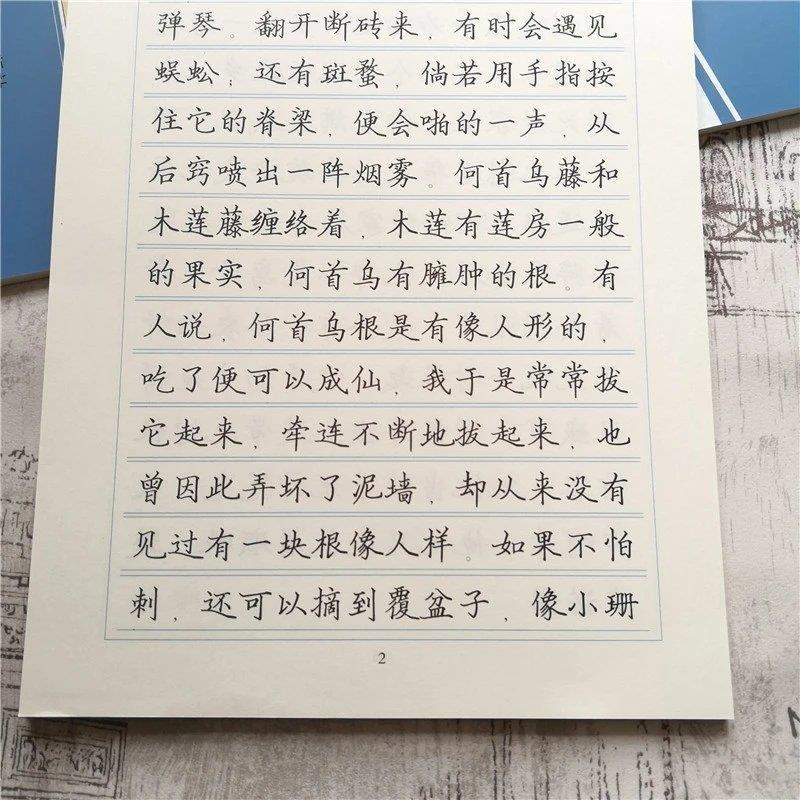 弹琴。翻开断砖来，有时会遇见
蜈蚣；还有斑蝥，倘若用手指按
住它的脊梁，便会啪的一声，从
后窍喷出一阵烟雾。何首乌藤和
木莲藤缠络着，木莲有莲房一般
的果实，何首乌有臃肿的根。有
人说，何首乌根是有像人形的，
吃了便可以成仙，我于是常常拔
它起来，牵连不断地拔起来，也
曾因此弄坏了泥墙，却从来没有
见过有一块根像人样。如果不怕
刺，还可以摘到覆盆子，像小珊
2